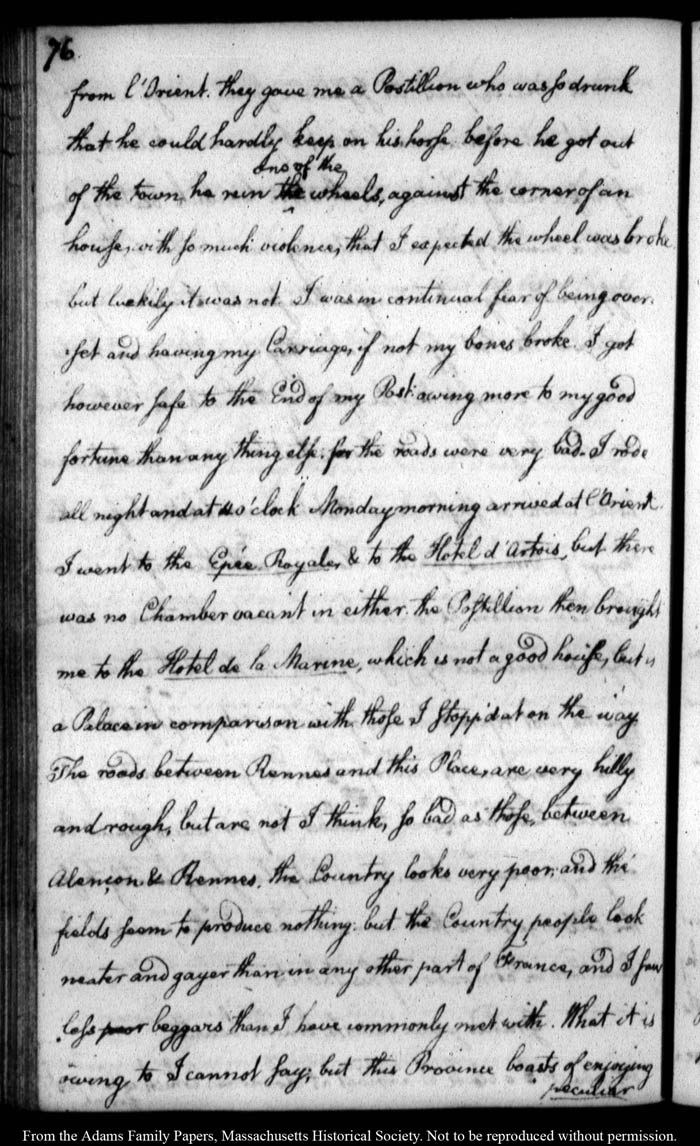 76
from l'Orient. they gave me a Postillion who was so drunk
that he could hardly keep on his horse. before he got out
one of the
of the town, he run the wheels, against the corner of an
house, with so much violence, that I expected the wheel was broke
but luckily it was not. I was in continual fear of being over.
set and having my Carriage, if not my bones broke. I got
however safe to the End of my Post: owing more to my good
fortune than any thing else. for the roads were very bad. I rode
all night and at o'clock Monday morning arrived at l'Orient.
I went to the Epée Royale, & to the Hotel d'Artois, but there
was no Chamber vacant in either. the Postillion then brought
me to the Hotel de la Marine, which is not a good house, but is
a Palace in comparison with those I stopp'd at on the way
The roads between Rennes and this Place, are very hilly
and rough, but are not I think, so bad as those, between
Alençon & Rennes. the Country looks very poor, and the
fields seem to produce nothing: but the Country people look
neater and gayer than in any other part of France, and I saw
less poor beggars than I have commonly met with. What it is
owing to I cannot say; but this Province boasts of enjoying
peculiar
From the Adams Family Papers, Massachusetts Historical Society. Not to be reproduced without permission.